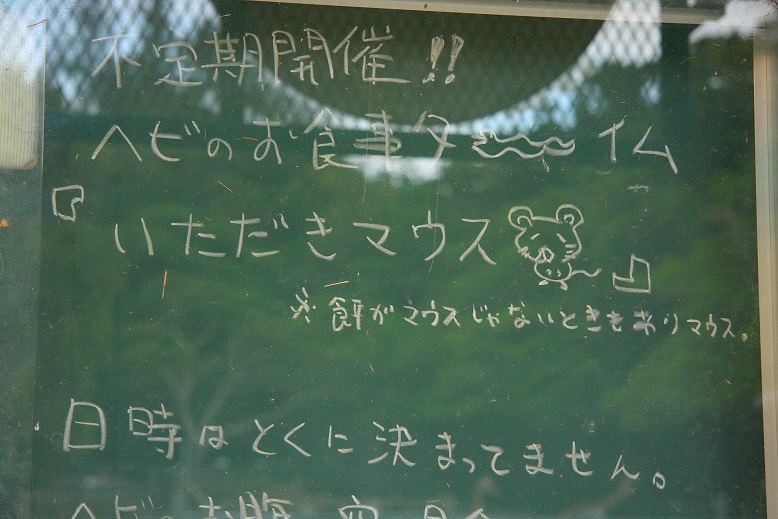 不定期開催!!
ヘビのお食事タ〜〜イム
『いただきマウス』
※餌がマウスじゃないときもありマウス。
日時はとくに決まってません。
ヘビのお腹